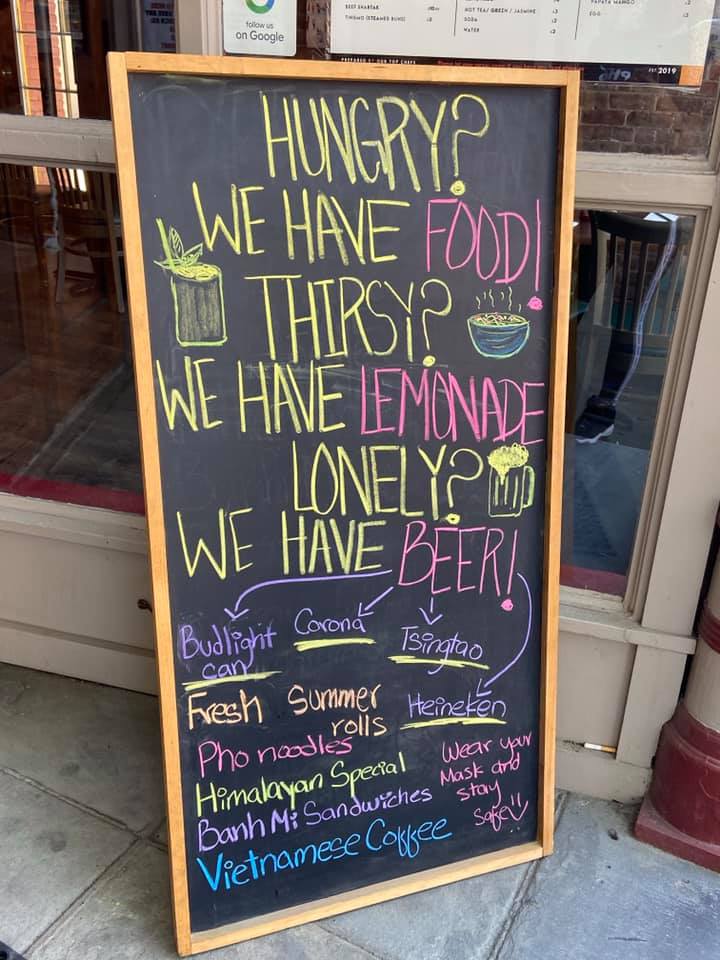 follow us
on Google
BEEF SHAPTAK
TINGMO (STEAMED BUNS)
HOT TEA/ GREEN / JASMINE
SODA
WATER
PAPAYA MANGO
EGG
EST 2019
HUNGRY?
WE HAVE FOOD!
THIRSY?
WE HAVE LEMONADE
LONELY?
WE HAVE BEER!
Budlight can
Corona
Tsingtao
Heineken
Fresh Summer
rolls
Pho noodles
Himalayan Special
Banh Mi Sandwiches
Vietnamese Coffee
Wear your
Mask and
stay
safe!!